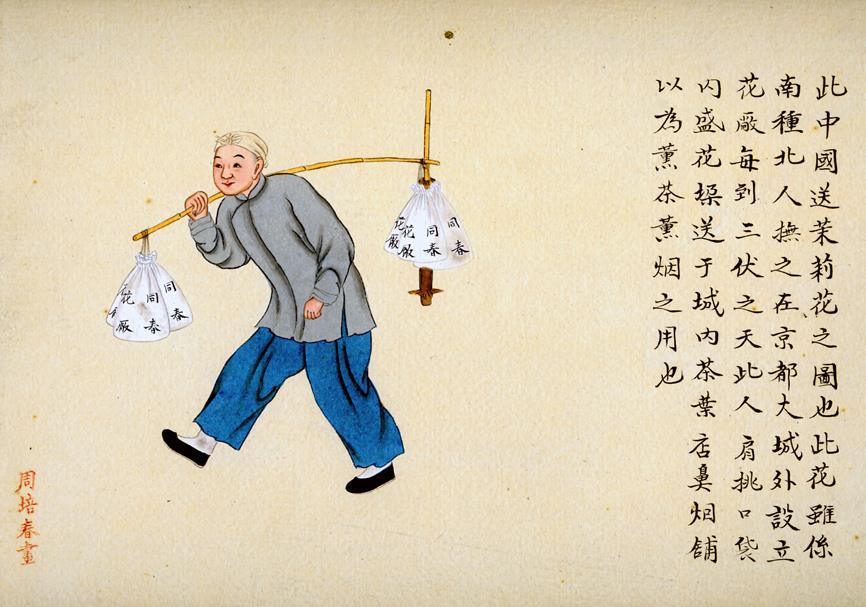 此中國送茉莉花之圖也此花雖係
南種北人撫之在京都大城外設立
花厰每到三伏之天此人肩挑口袋
內盛花送于城內茶葉店鼻烟舖
以為薰茶薰烟之用也
同春
同春
花厰
花
同春
同春
花厰
周培春畫